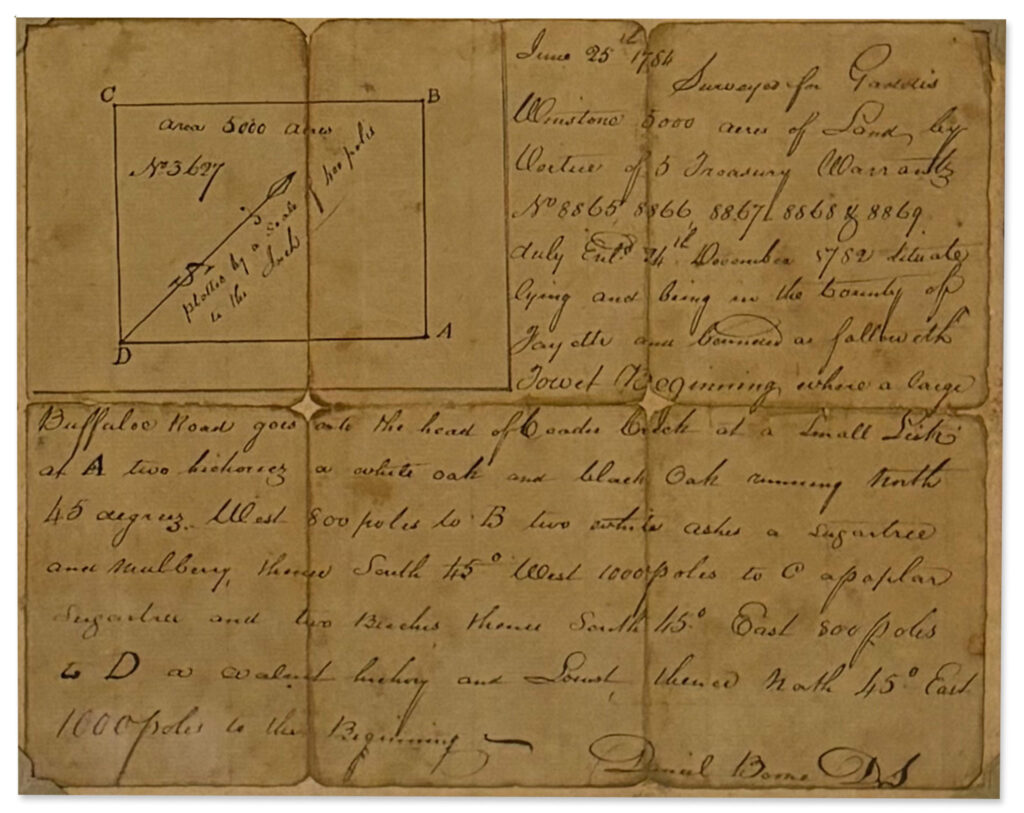 C
B
area 5000 acres
No 3627
plotted by a Scale of 400 poles
to the Inch
S
D
A
June 25th 1784
Surveyed for Gaddis
Winstone 5000 acres of Land by
Vertue of 5 Treasury Warrants
No 8865, 8866, 8867, 8868 & 8869
duly Entd 24th December 1782 Situate
lying and being in the County of
Fayette and bounded as followeth
Towit Beginning where a large
Buffaloe Road goes into the head of Ceader Creek at a Small Lick
at A two hickories a white oak and black Oak running North
45 degrees West 800 poles to B two white ashes a Sugartree
and mulberry, thence South 45° West 1000 poles to C a poplar
Sugartree and two Beeches thence South 45° East 800 poles
to D a walnut hickory and Locust, thence North 45° East
1000 poles to the Beginning
Daniel Boone D S